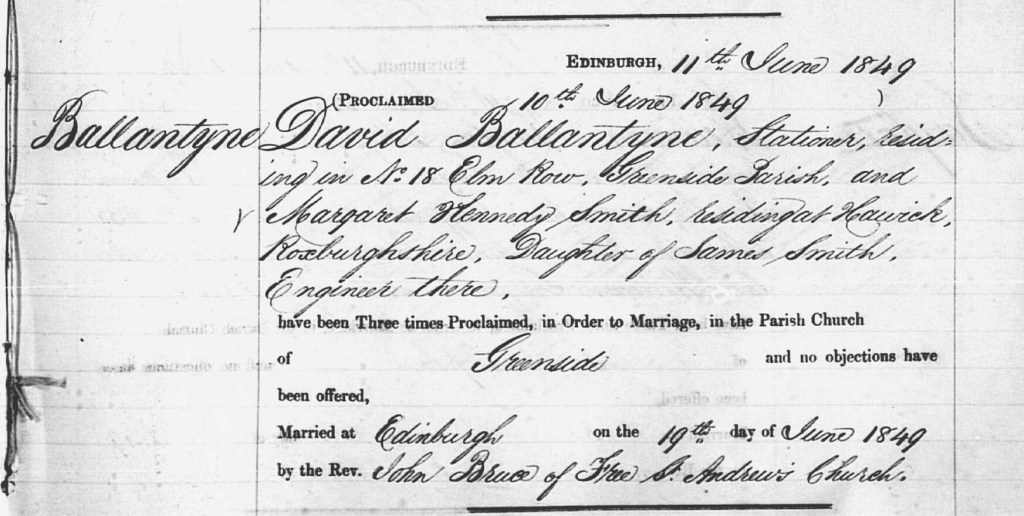 EDINBURGH, 11th June 1849
(PROCLAIMED 10th June 1849 )
Ballantyne David Ballantyne, Stationer, resid=
ing in No. 18 Elm Row, Greenside Parish, and
Margaret Kennedy Smith, residing at Hawick,
Roxburghshire, Daughter of James Smith,
Engineer there,
have been Three times Proclaimed, in Order to Marriage, in the Parish Church
of Greenside and no objections have
been offered,
Married at Edinburgh on the 19th day of June 1849
by the Rev. John Bruce of Free St. Andrew's Church.